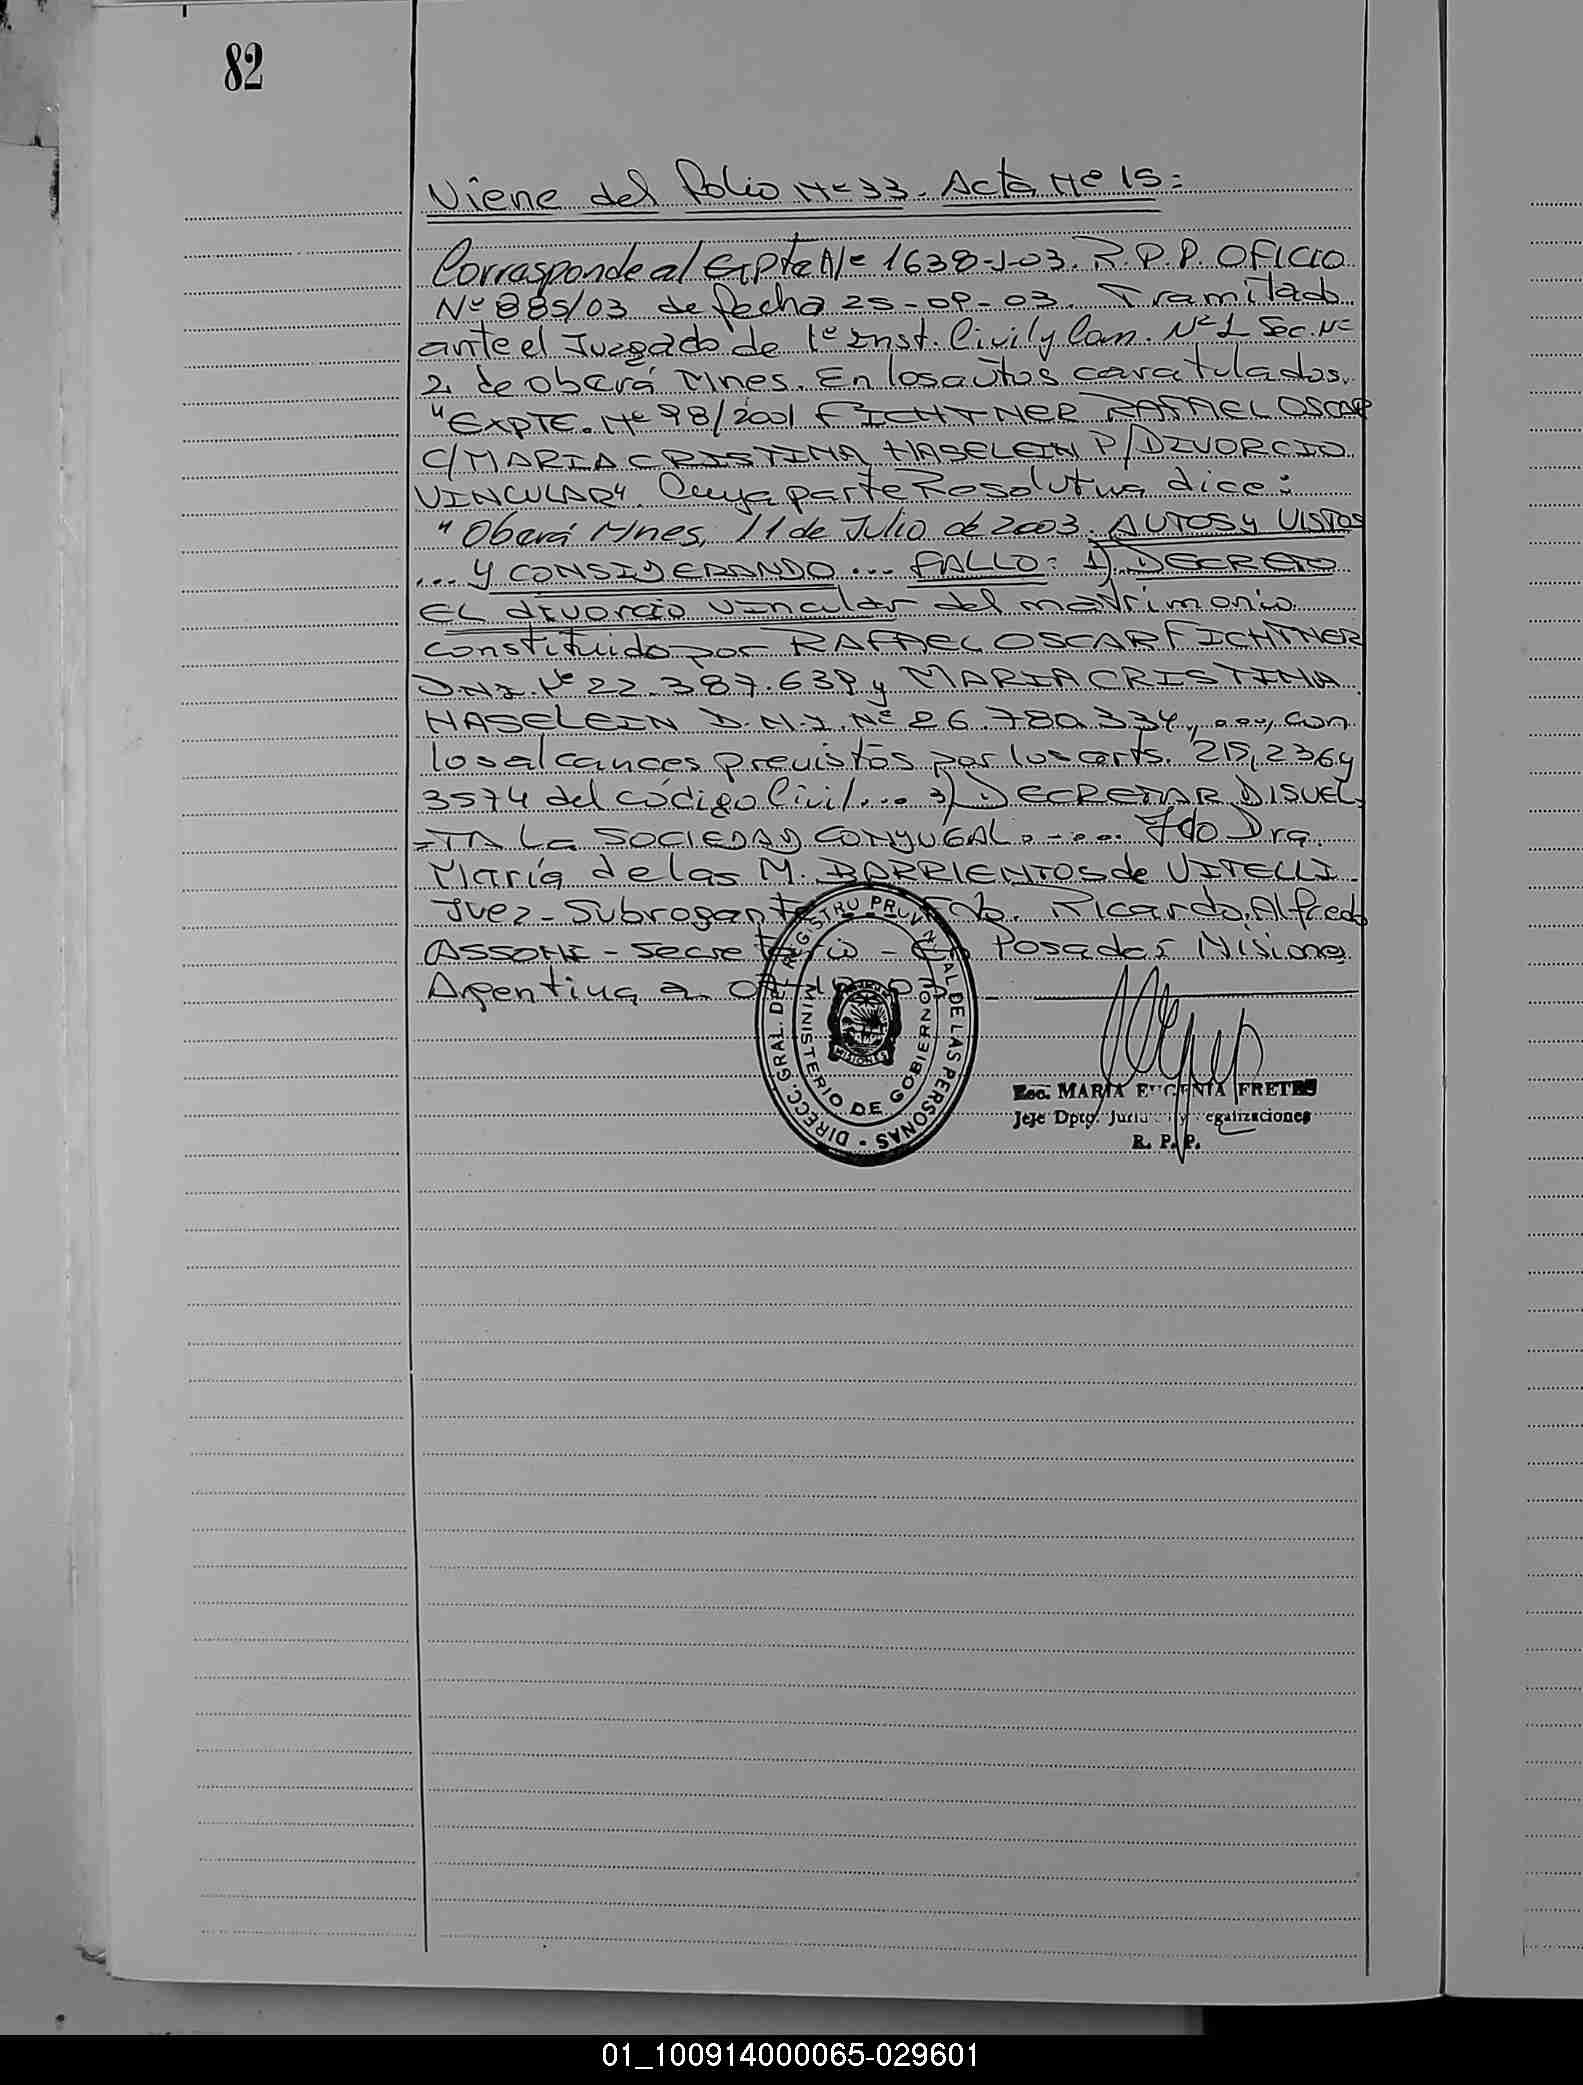 82
Viene del Folio Nº 33. Acta Nº 15:
Corresponde al Expte Nº 1638-J-03. R.P.P. OFICIO
Nº 885/03 de fecha 25-09-03. Tramitado
ante el Juzgado de 1º Inst. Civil y Com. Nº 1 Sec. Nº
2 de Oberá Mnes. En los autos caratulados.
"EXPTE. Nº 98/2001 FICHTNER RAFAEL OSCAR
C/ MARIA CRISTINA HASELEIN P/ DIVORCIO
VINCULAR". Cuya parte Resolutiva dice:
"Oberá Mnes, 11 de Julio de 2003. AUTOS y VISTOS
... y CONSIDERANDO ... FALLO: 1) DECRETO
EL divorcio vincular del matrimonio
constituido por RAFAEL OSCAR FICHTNER
D.N.I. Nº 22.387.639 y MARIA CRISTINA
HASELEIN D.N.I. Nº 26.780.334, ..., con
los alcances previstos por los arts. 215, 236 y
3574 del código Civil ... 3) DECRETAR DISUEL
=TA La SOCIEDAD CONYUGAL. -... Fdo Dra.
María de las M. BARRIENTOS de VITELLI
Juez - Subrogante Fdo. Ricardo Alfredo
ASSONE - Secretario - En Posadas Misiones
Argentina a
DIRECC. GRAL. DEL REGISTRO PROVINCIAL DE LAS PERSONAS
MINISTERIO DE GOBIERNO
MISIONES
Esc. MARIA EUGENIA FRETES
Jefe Dpto. Juríd. y Legalizaciones
R. P. P.
01_100914000065-029601